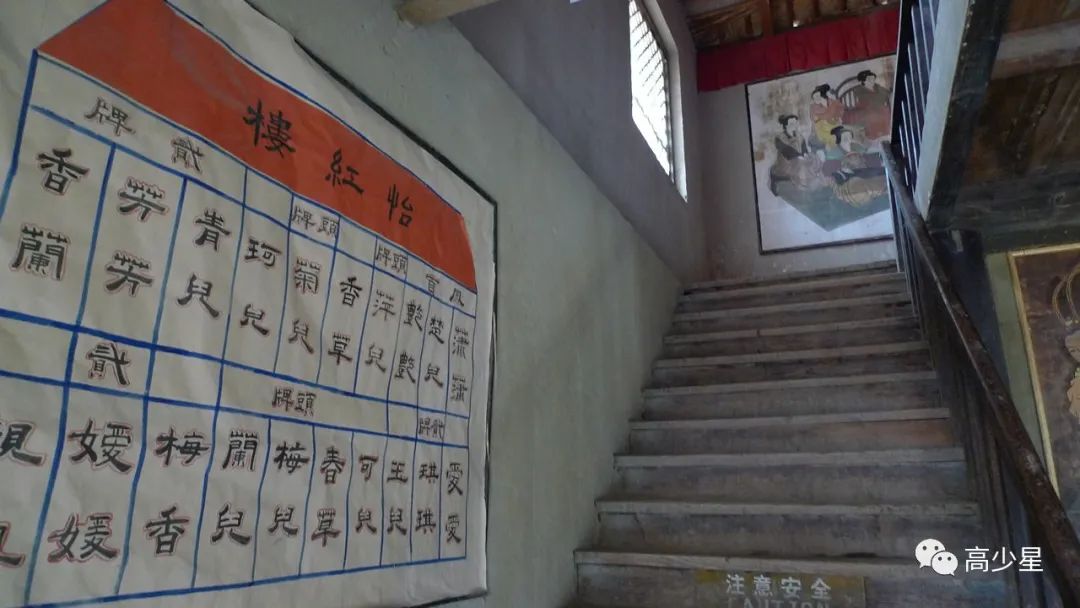 怡紅樓
頭牌
頭牌
貳牌
楚兒
艷艷
萍兒
香草
菊兒
珂兒
青兒
芳芳
香蘭
貳牌
頭牌
貳
愛愛
琪琪
王兒
可兒
春草
梅兒
蘭兒
梅香
嫒嫒
注意安全
CAUTION
高少星